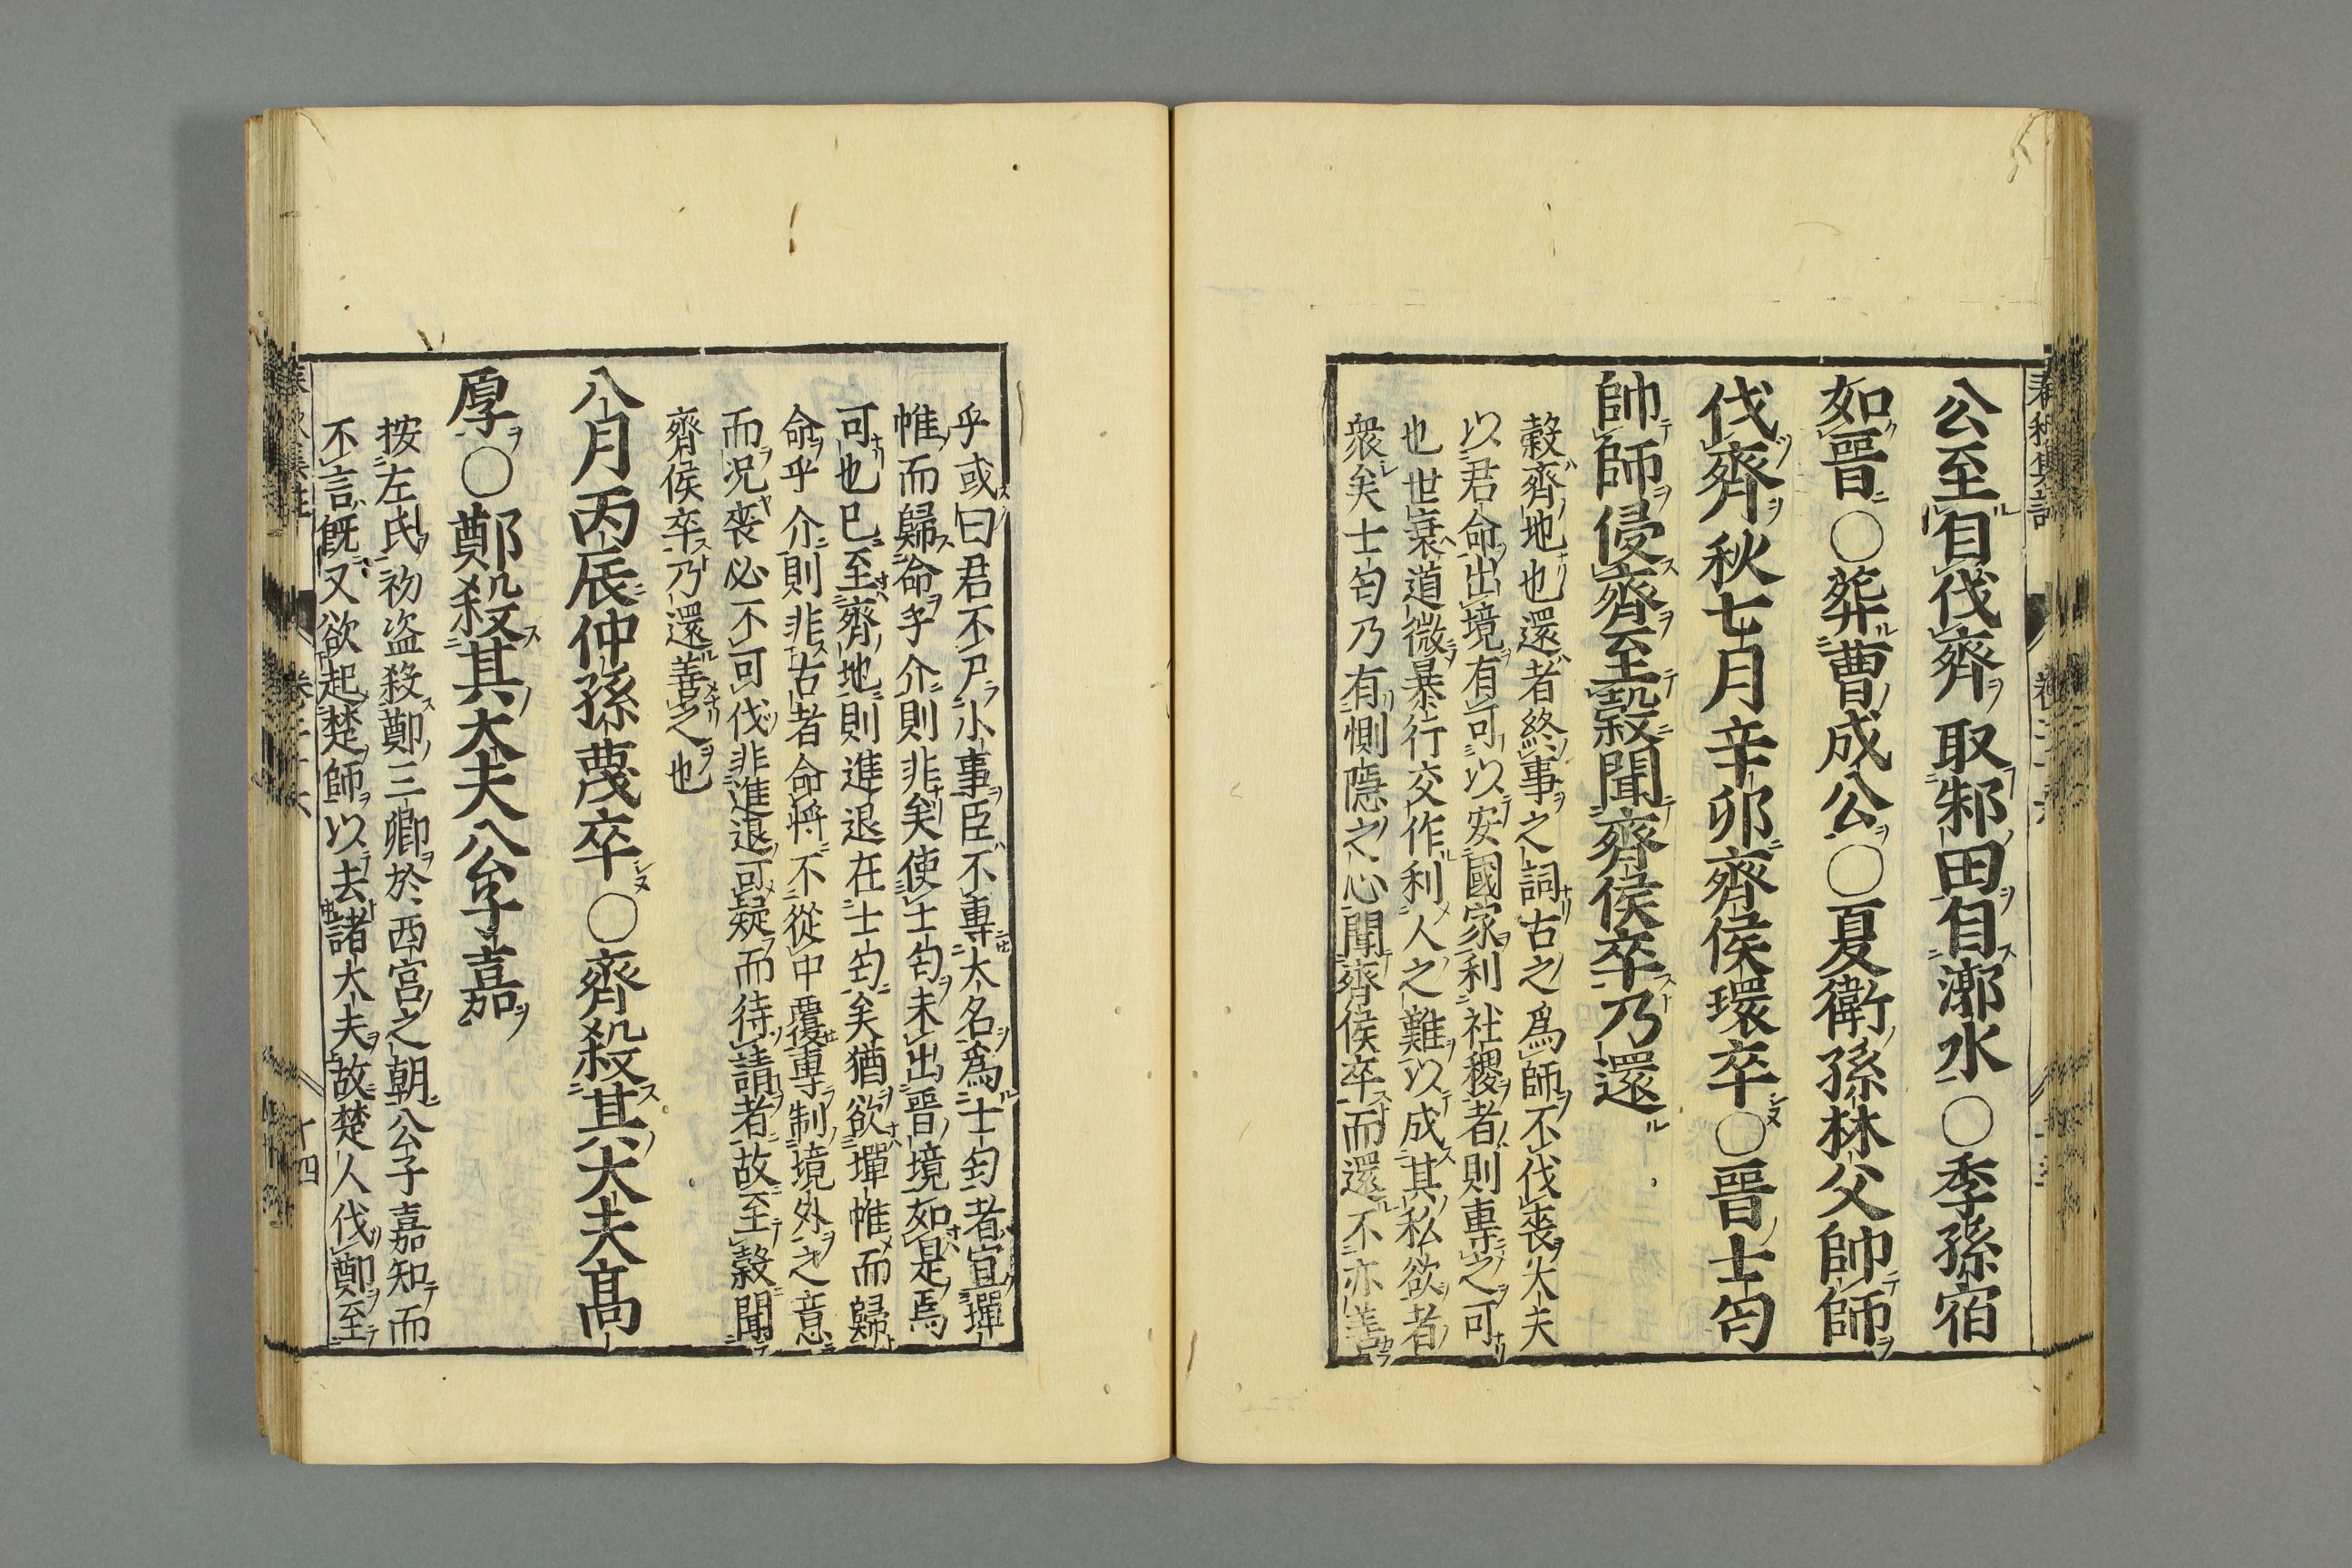 公至自伐齊取邾田自漷水○季孫宿
如晉○葬曹成公○夏衛孫林父帥師
伐齊秋七月辛卯齊侯環卒○晉士匄
帥師侵齊至穀聞齊侯卒乃還
穀齊地也還者終事之詞古之爲師不伐喪大夫
以君命出境有可以安國家利社稷者則專之可
也世衰道微暴行交作利人之難以成其私欲者
衆矣士匄乃有惻隱之心聞齊侯卒而還不亦善
乎或曰君不尸小事臣不專大名爲士匄者宜墠
帷而歸命乎介則非矣使士匄未出晉境如是焉
可也已至齊地則進退在士匄矣猶欲墠帷而歸
命乎介則非古者命將不從中覆專制境外之意
而況喪必不可伐非進退可疑而待請者故至穀聞
齊侯卒乃還善之也
八月丙辰仲孫蔑卒○齊殺其大夫高
厚○鄭殺其大夫公子嘉
按左氏初盗殺鄭三卿於西宮之朝公子嘉知而
不言既又欲起楚師以去諸大夫故楚人伐鄭至
十四